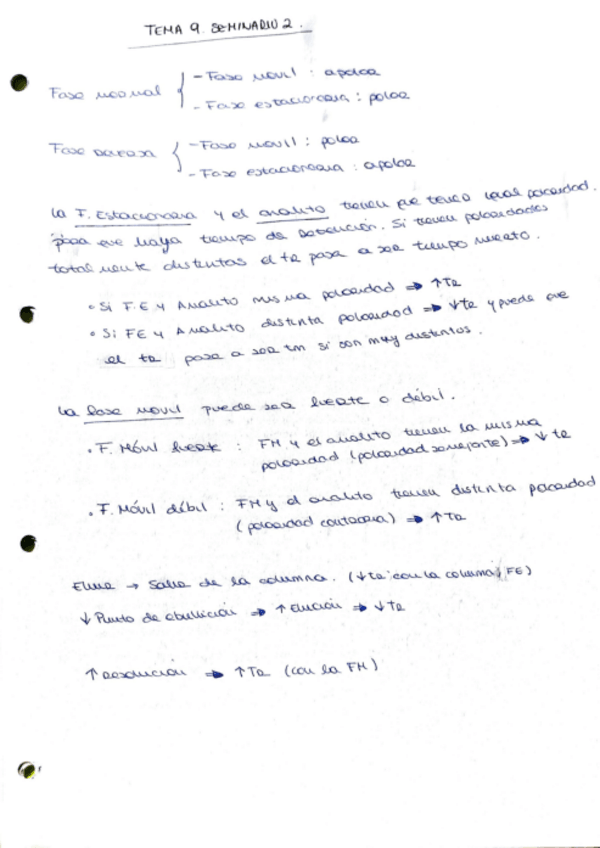 TEMA 9. SEMINARIO 2.
Fase normal { - Fase móvil : apolar
- Fase estacionaria : polar
Fase reversa { - Fase móvil : polar
- Fase estacionaria : apolar
La F. Estacionaria y el analito tienen que tener igual polaridad.
para que haya tiempo de retención. Si tienen polaridades
totalmente distintas el tr pasa a ser tiempo muerto.
• Si F.E y Analito misma polaridad ⇒ ↑Tr
• Si FE y Analito distinta polaridad ⇒ ↓tr y puede que
el tr pase a ser tm si son muy distintos.
La fase móvil puede ser fuerte o débil.
• F. Móvil fuerte : FM y el analito tienen la misma
polaridad (polaridad semejante) ⇒ ↓ tr
• F. Móvil débil : FM y el analito tienen distinta polaridad
(polaridad contraria) ⇒ ↑Tr
Eluir → Salir de la columna. (↓tr con la columna, FE)
↓ Punto de ebullición ⇒ ↑ Elución ⇒ ↓tr
↑ Resolución ⇒ ↑Tr (con la FM)